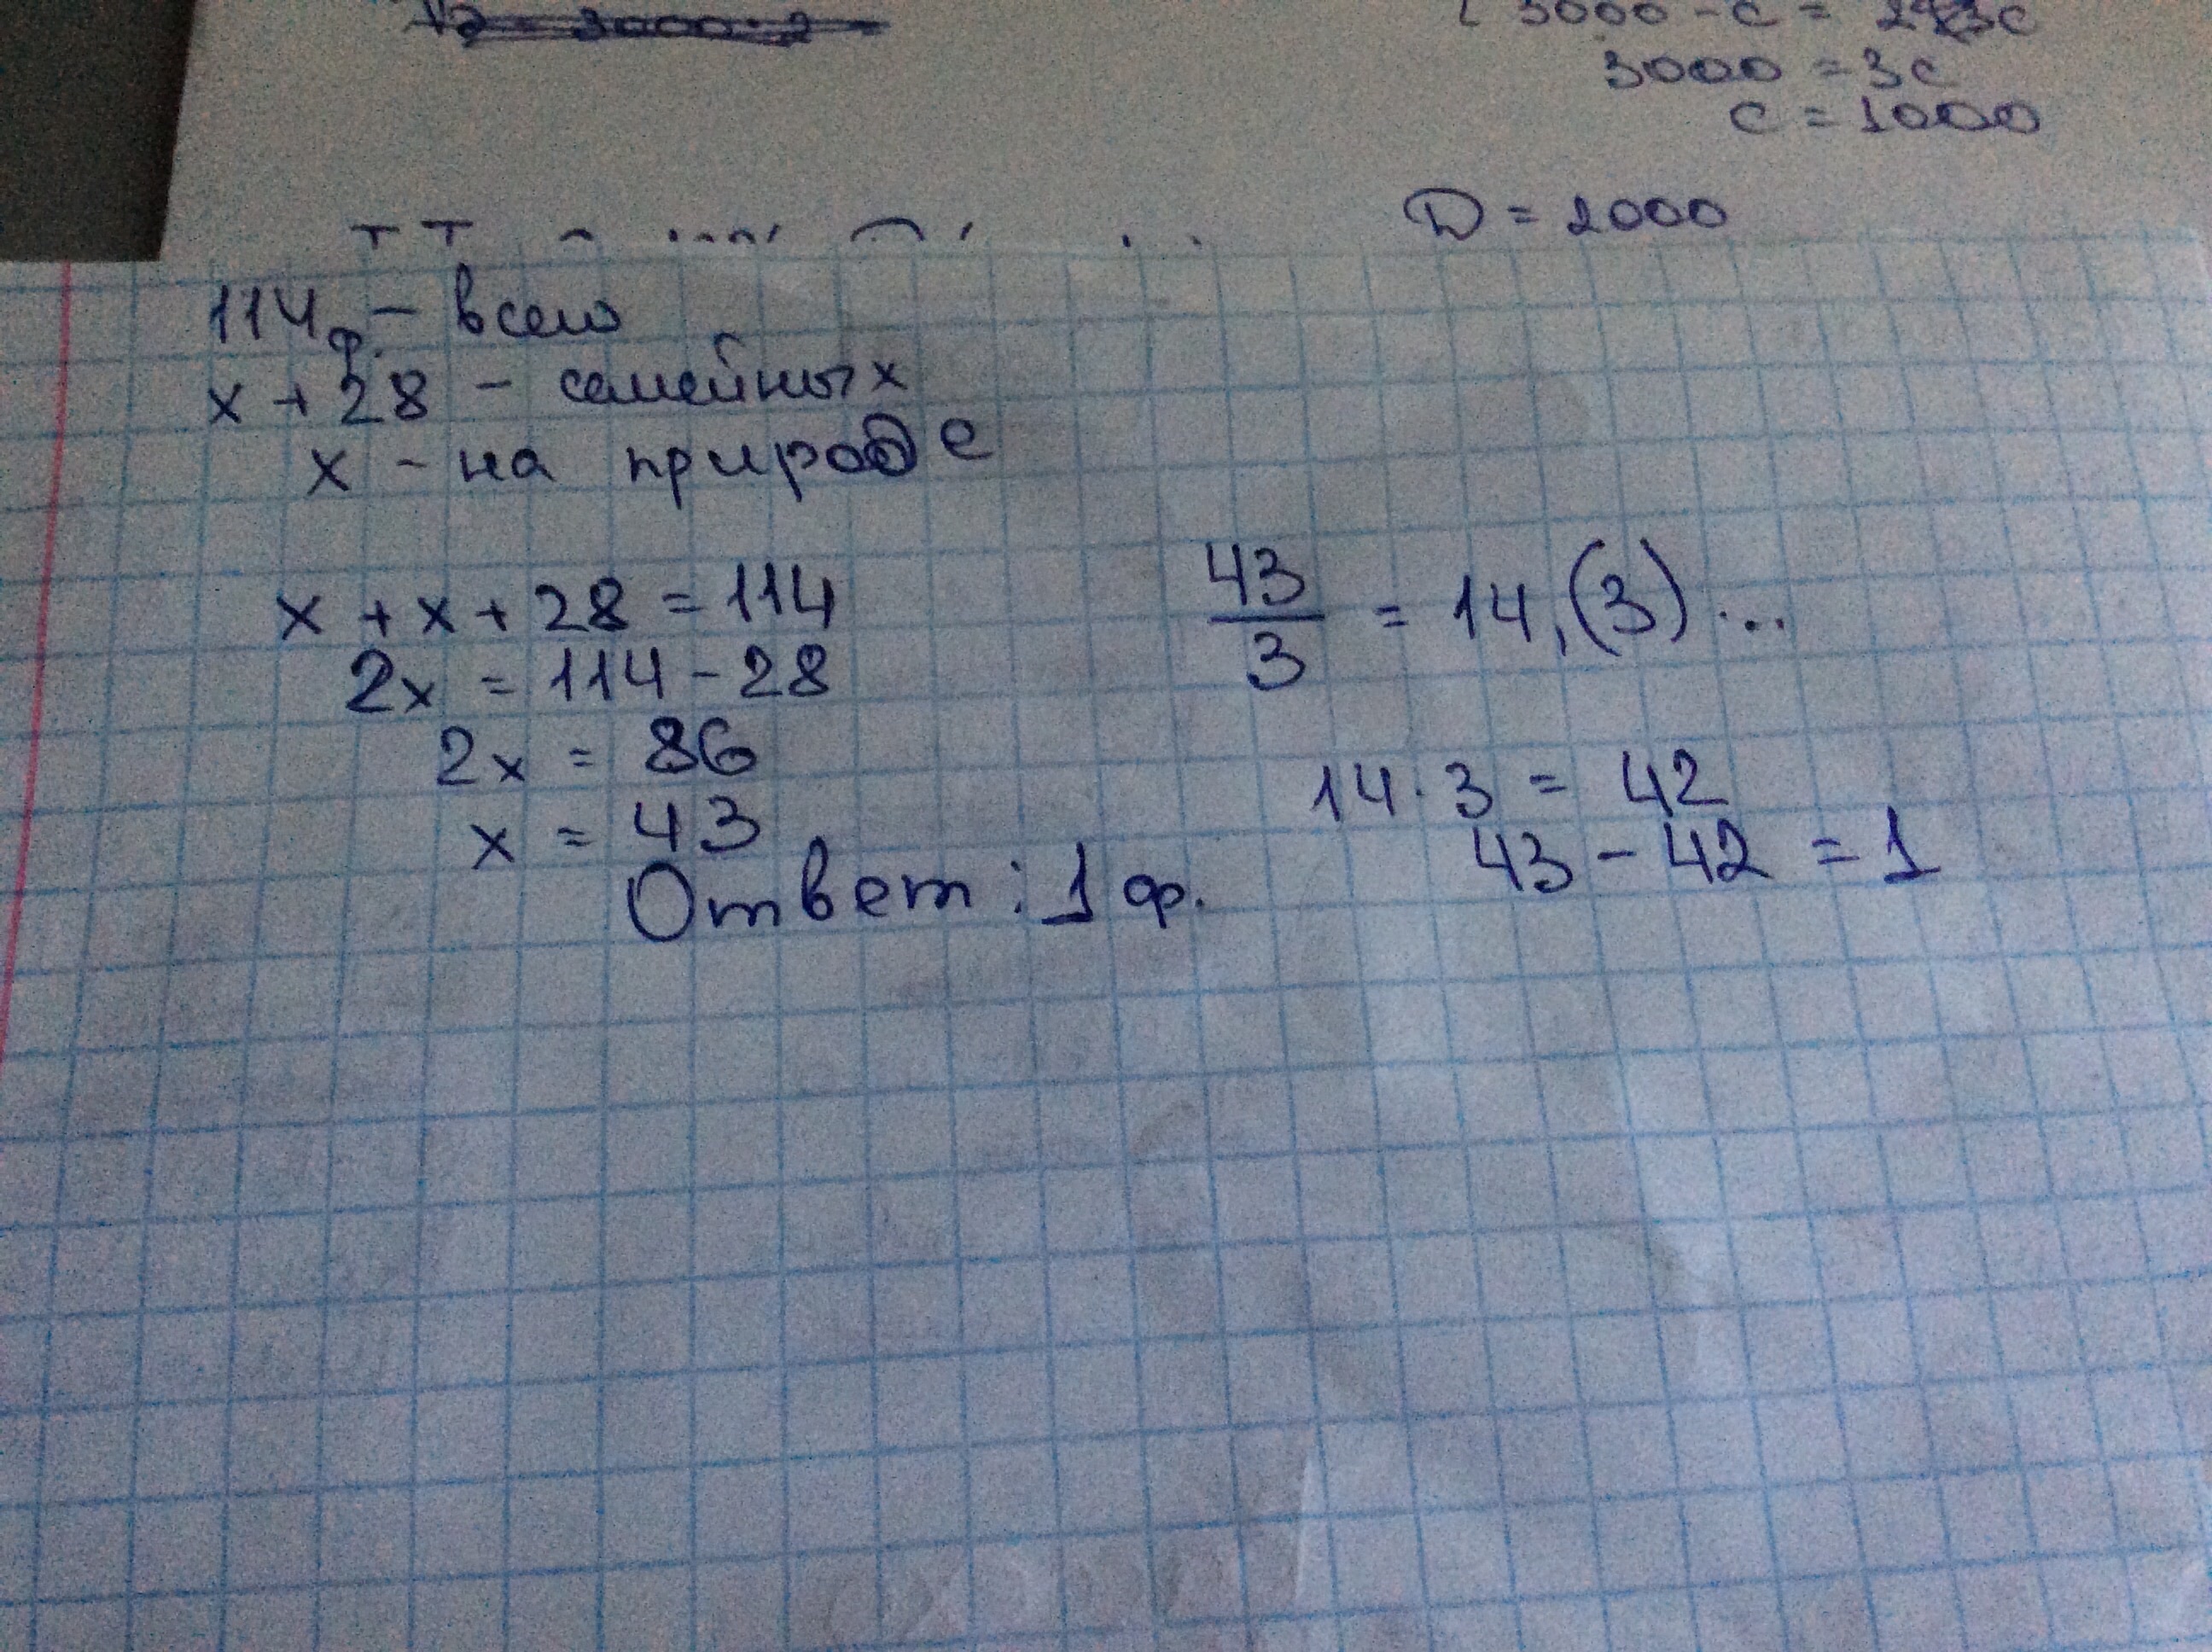 3000 - c = 2c
3000 = 3c
c = 1000
D = 2000
114ф. - всего
x + 28 - семейных
x - на природе
x + x + 28 = 114
2x = 114 - 28
2x = 86
x = 43
43/3 = 14,(3)...
14 · 3 = 42
43 - 42 = 1
Ответ: 1 ф.